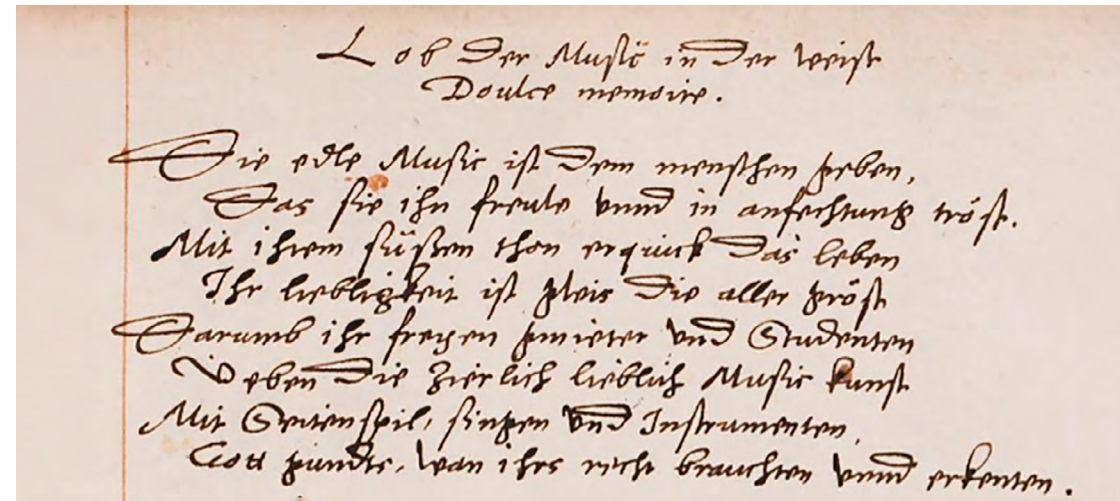 Lob der Music in der weist
Doulce memoire.
Die edle Music ist dem menschen geben,
Das sie ihn freule vnnd in anfechtung tröst.
Mit ihrem süßen thon erquick das leben
Ihr liebligkeit ist gleis die aller gröst
Darumb ihr freyen gmieter vnd Studenten
Veben die zierlich lieblich Music kunst
Mit Seitenspil, singen vnd Instrumenten,
Gott gundts, wan ihrs recht brauchten vnnd erkenten.